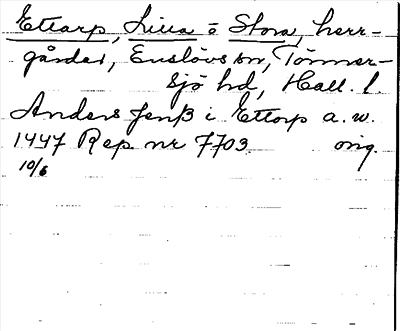 Ettarp, Lilla o Stora, herr-
gårdar, Enslövs sn, Tönner-
sjö hd, Hall. l.
Anders Jenß i Ettorp a. w.
1447 Rep nr 7703 orig.
10/6